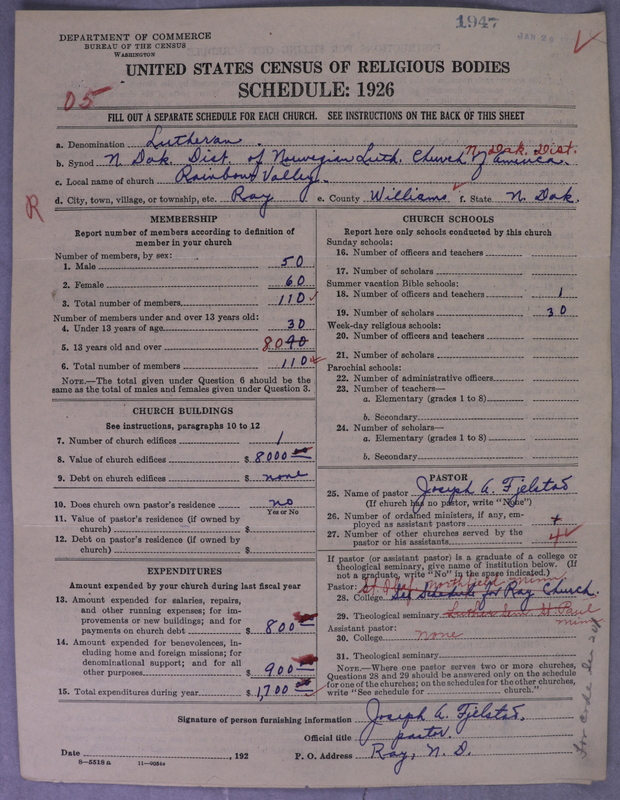 1947
DEPARTMENT OF COMMERCE
BUREAU OF THE CENSUS
WASHINGTON
UNITED STATES CENSUS OF RELIGIOUS BODIES
SCHEDULE: 1926
05
FILL OUT A SEPARATE SCHEDULE FOR EACH CHURCH. SEE INSTRUCTIONS ON THE BACK OF THIS SHEET
a. Denomination Lutheran
N. Dak. Dist.
b. Synod N. Dak. Dist. of Norwegian Luth. Church of America.
c. Local name of church Rainbow Valley.
d. City, town, village, or township, etc. Ray e. County Williams f. State N. Dak.
R
MEMBERSHIP
Report number of members according to definition of
member in your church
Number of members, by sex:
1. Male 50
2. Female 60
3. Total number of members 110
Number of members under and over 13 years old:
4. Under 13 years of age 30
5. 13 years old and over 80 90
6. Total number of members 110
NOTE.—The total given under Question 6 should be
same as the total of males and females given under Question 3.
CHURCH BUILDINGS
See instructions, paragraphs 10 to 12
7. Number of church edifices 1
8. Value of church edifices $ 8000
9. Debt on church edifices $ none
10. Does church own pastor's residence no
Yes or No
11. Value of pastor's residence (if owned by
church) $
12. Debt on pastor's residence (if owned by
church) $
EXPENDITURES
Amount expended by your church during last fiscal year
13. Amount expended for salaries, repairs,
and other running expenses; for im-
provements or new buildings; and for
payments on church debt $ 800
14. Amount expended for benevolences, in-
cluding home and foreign missions; for
denominational support; and for all
other purposes $ 900
15. Total expenditures during year $ 1,700
CHURCH SCHOOLS
Report here only schools conducted by this church
Sunday schools:
16. Number of officers and teachers
17. Number of scholars
Summer vacation Bible schools:
18. Number of officers and teachers 1
19. Number of scholars 30
Week-day religious schools:
20. Number of officers and teachers
21. Number of scholars
Parochial schools:
22. Number of administrative officers
23. Number of teachers—
a. Elementary (grades 1 to 8)
b. Secondary
24. Number of scholars—
a. Elementary (grades 1 to 8)
b. Secondary
PASTOR
25. Name of pastor Joseph A. Fjelstad
(If church has no pastor, write "None")
26. Number of ordained ministers, if any, em-
ployed as assistant pastors
27. Number of other churches served by the
pastor or his assistants 4
If pastor (or assistant pastor) is a graduate of a college or
theological seminary, give name of institution below. (If
not a graduate, write "No" in the space indicated.)
Pastor: St. Olaf, Northfield, Minn
28. College See Schedule for Ray Church.
29. Theological seminary Luther Sem. St. Paul
Minn
Assistant pastor:
30. College None
31. Theological seminary
NOTE.—Where one pastor serves two or more churches,
Questions 28 and 29 should be answered only on the schedule
for one of the churches; on the schedules for the other churches,
write "See schedule for church."
Signature of person furnishing information Joseph A. Fjelstad.
Official title pastor.
Date , 192 P. O. Address Ray, N. D.
8—5518a 11—9054a